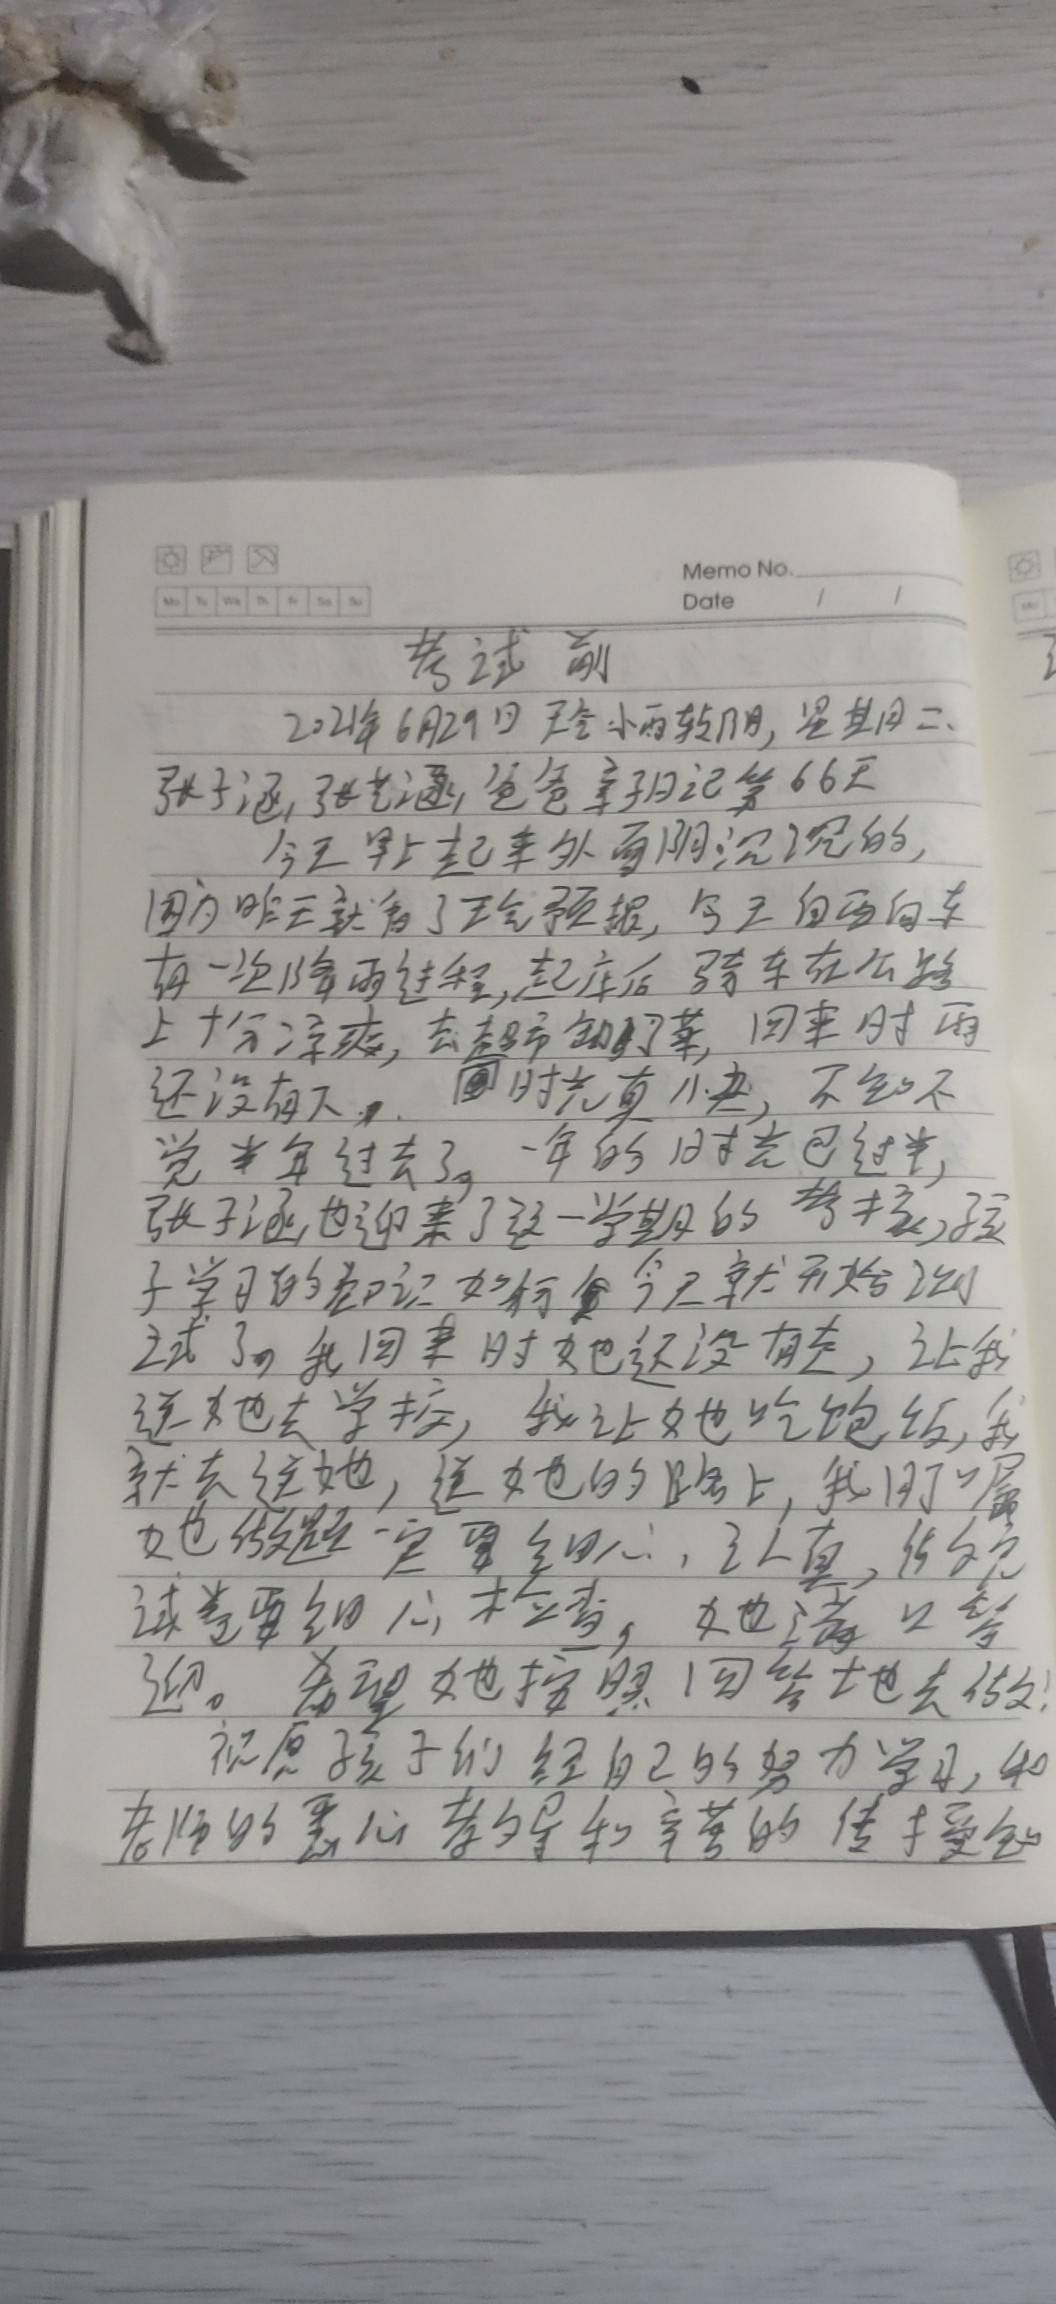 Memo No.
Mo Tu We Th Fr Sa Su
Date / /
考试前
2021年6月29日 天气小雨转阴,星期二、
张子涵,张艺涵,爸爸亲子日记第66天
今天早上起来外面阴沉沉的,
因为昨天就看了天气预报,今天自西向东
有一次降雨过程,起床后骑车在公路
上十分凉爽,去超市 菜,回来时雨
还没有下。 时光真快,不知不
觉半年过去了。一年的时光已过半,
张子涵,也迎来了这一学期的考核,孩
子学习的知识如何 今天就开始测
试了。我回来时她还没有走,让我
送她去学校,我让她吃饱饭,我
就去送她,送她的路上,我叮嘱
她做题一定要细心,认真,做完
试卷要细心检查,她满口答
应。希望她按照回答地去做!
祝愿孩子们经自己的努力学习,和
老师的悉心教导和辛苦的传授知